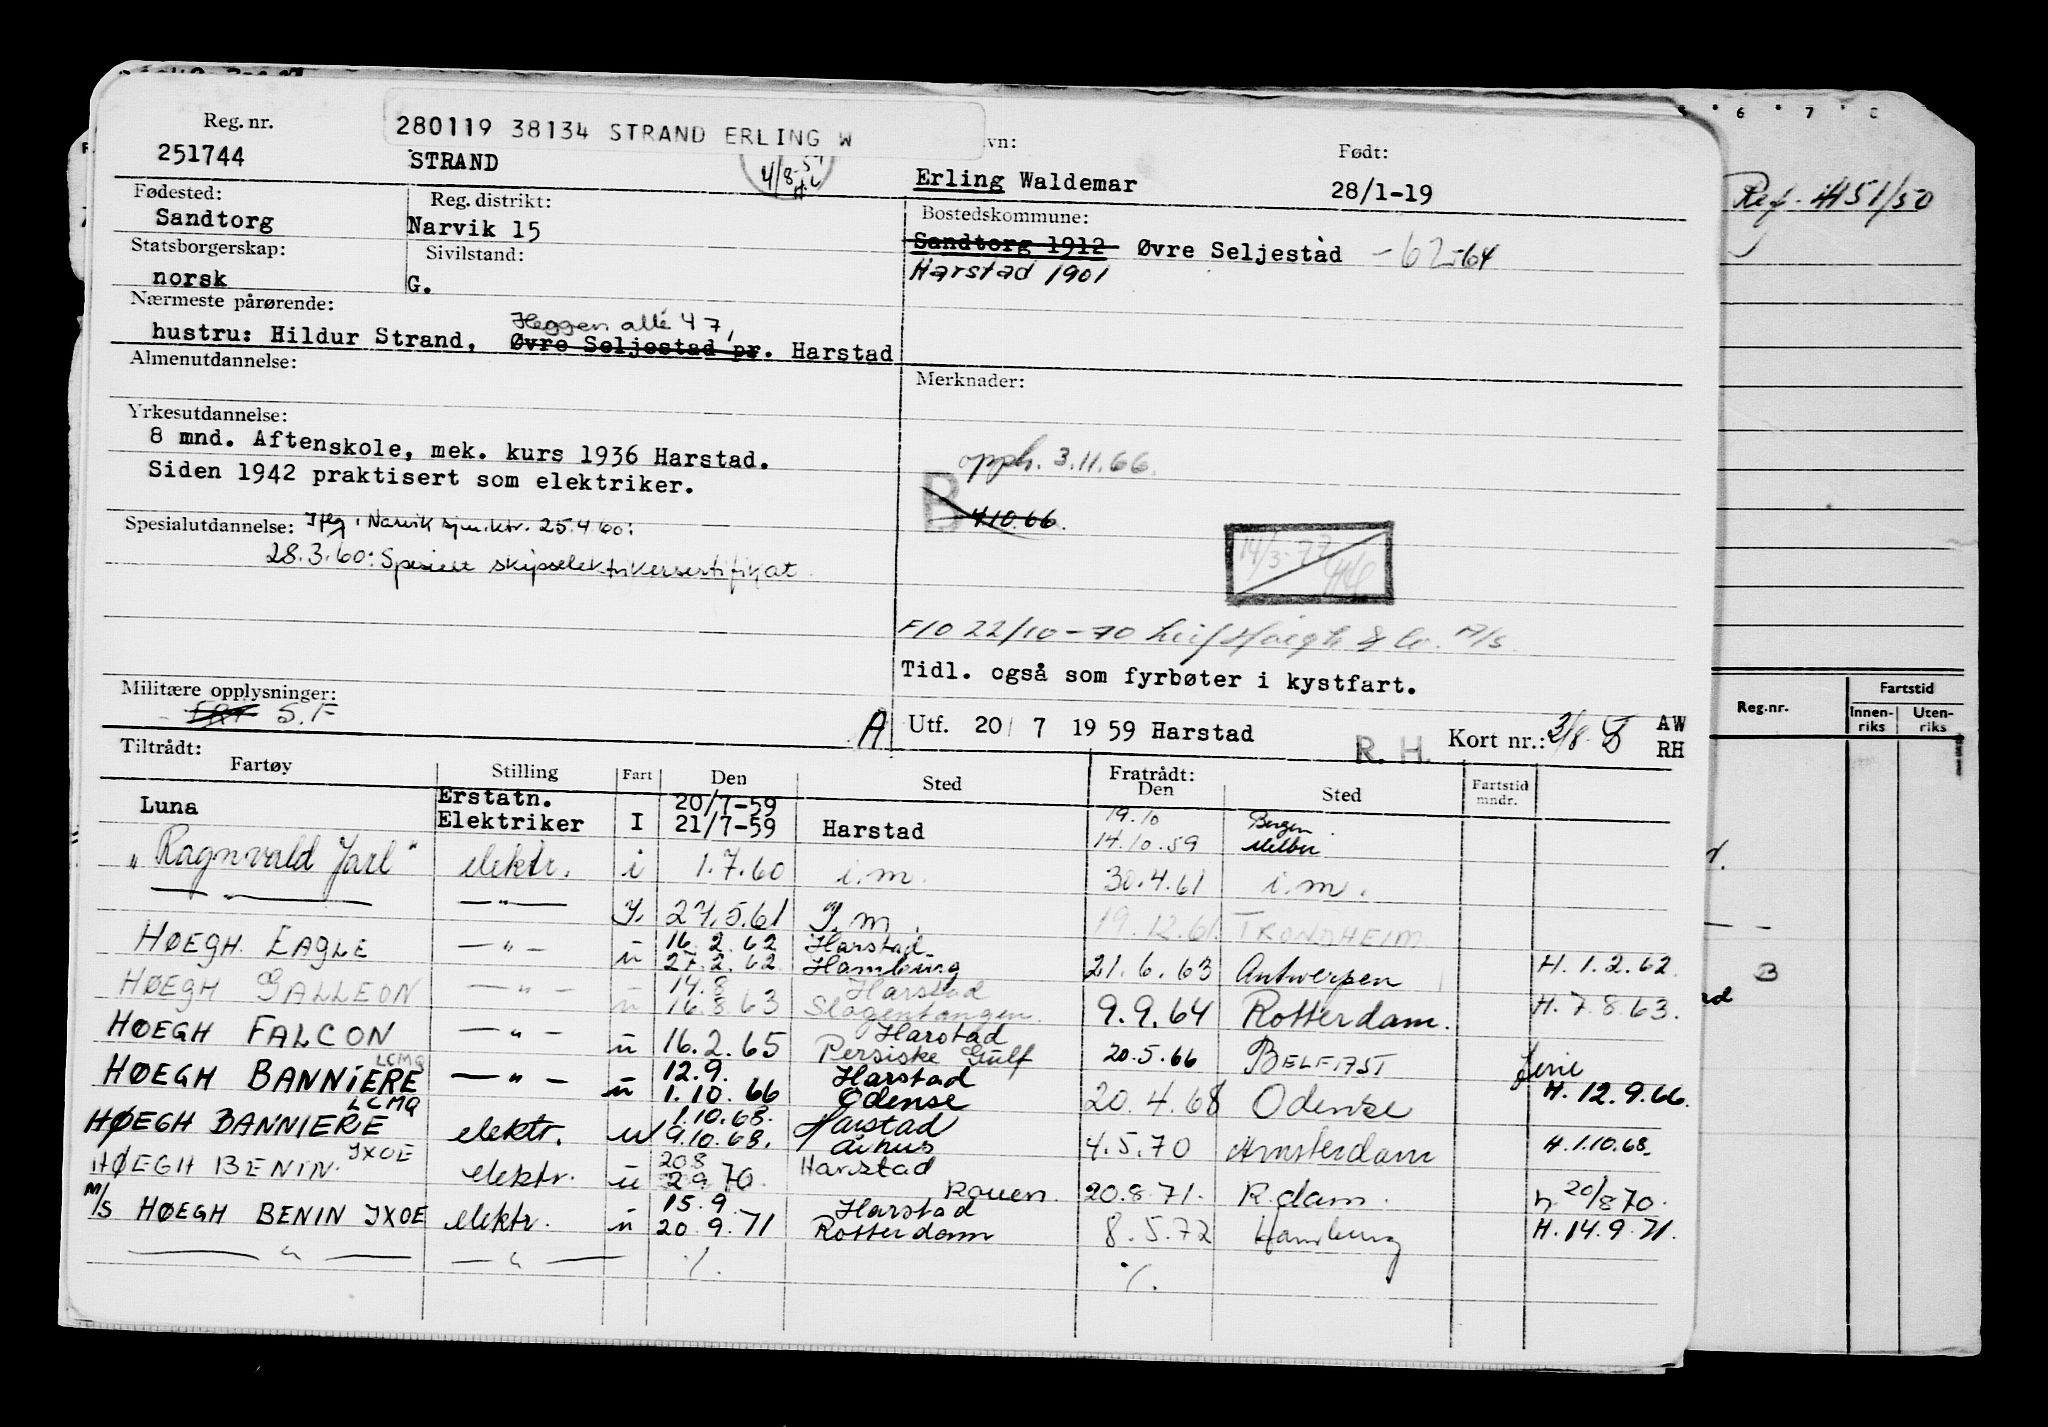 280119 38134 STRAND ERLING W
Reg. nr. vn: Født:
251744 STRAND Erling Waldemar 28/1-19
4/8-59
Fødested: Reg. distrikt: Bostedskommune:
Sandtorg Narvik 15 Sandtorg 1912 Øvre Seljestad -62-64
Statsborgerskap: Sivilstand: Harstad 1901
norsk G.
Nærmeste pårørende:
Heggen allé 47,
hustru: Hildur Strand, Øvre Seljestad pr. Harstad
Almenutdannelse: Merknader:
Yrkesutdannelse:
8 mnd. Aftenskole, mek. kurs 1936 Harstad.
Siden 1942 praktisert som elektriker.
opph. 3.11.66.
B 4.10.66.
Spesialutdannelse: Iflg. Narvik sjm.ktr. 25.4.60:
28.3.60: Spesielt skipselektrikersertifikat.
14/3-72
F/O 22/10-70 Leif Höegh & Co. A/S.
Tidl. også som fyrbøter i kystfart.
Militære opplysninger:
S.F
A Utf. 20/7 1959 Harstad R. H. Kort nr.: AW
RH
Tiltrådt: Fratrådt:
Fartøy Stilling Fart Den Sted Den Sted Fartstid mndr.
Luna Erstatn. Elektriker I 20/7-59 21/7-59 Harstad 19.10 14.10.59 Bergen Melbu
"Ragnvald Jarl" elektr. i 1.7.60 i.m. 30.4.61 i.m.
— " — — " — I. 27.5.61 I.m. 19.12.61. TRONDHEIM
HØEGH EAGLE — " — u 16.2.62 27.2.62 Harstad Hamburg 21.6.63 Antwerpen H. 1.2.62.
HØEGH GALLEON — " — u 14.8 16.8.63 Harstad Slagentangen. 9.9.64 Rotterdam. H. 7.8.63.
HØEGH FALCON — " — u 16.2.65 Harstad Persiske Gulf 20.5.66 BELFAST ferie
HØEGH BANNIERE LCMQ — " — u 12.9. 1.10.66 Harstad Odense 20.4.68 Odense H. 12.9.66.
HØEGH BANNIERE LCMQ elektr. u 1.10.68. 9.10.68. Harstad Århus 4.5.70 Amsterdam H. 1.10.68.
HØEGH BENIN. JXOE elektr. u 20.8 2.9.70. Harstad Rouen. 20.8.71. R.dam. h. 20/8 70.
M/S HØEGH BENIN JXOE elektr. u 15.9. 20.9.71 Harstad Rotterdam 8.5.72 Hamburg H. 14.9.71.
— " — — " — ./. ./.
6 7
Ref. 4451/50
Reg.nr. Fartstid
Innen-riks Uten-riks
B